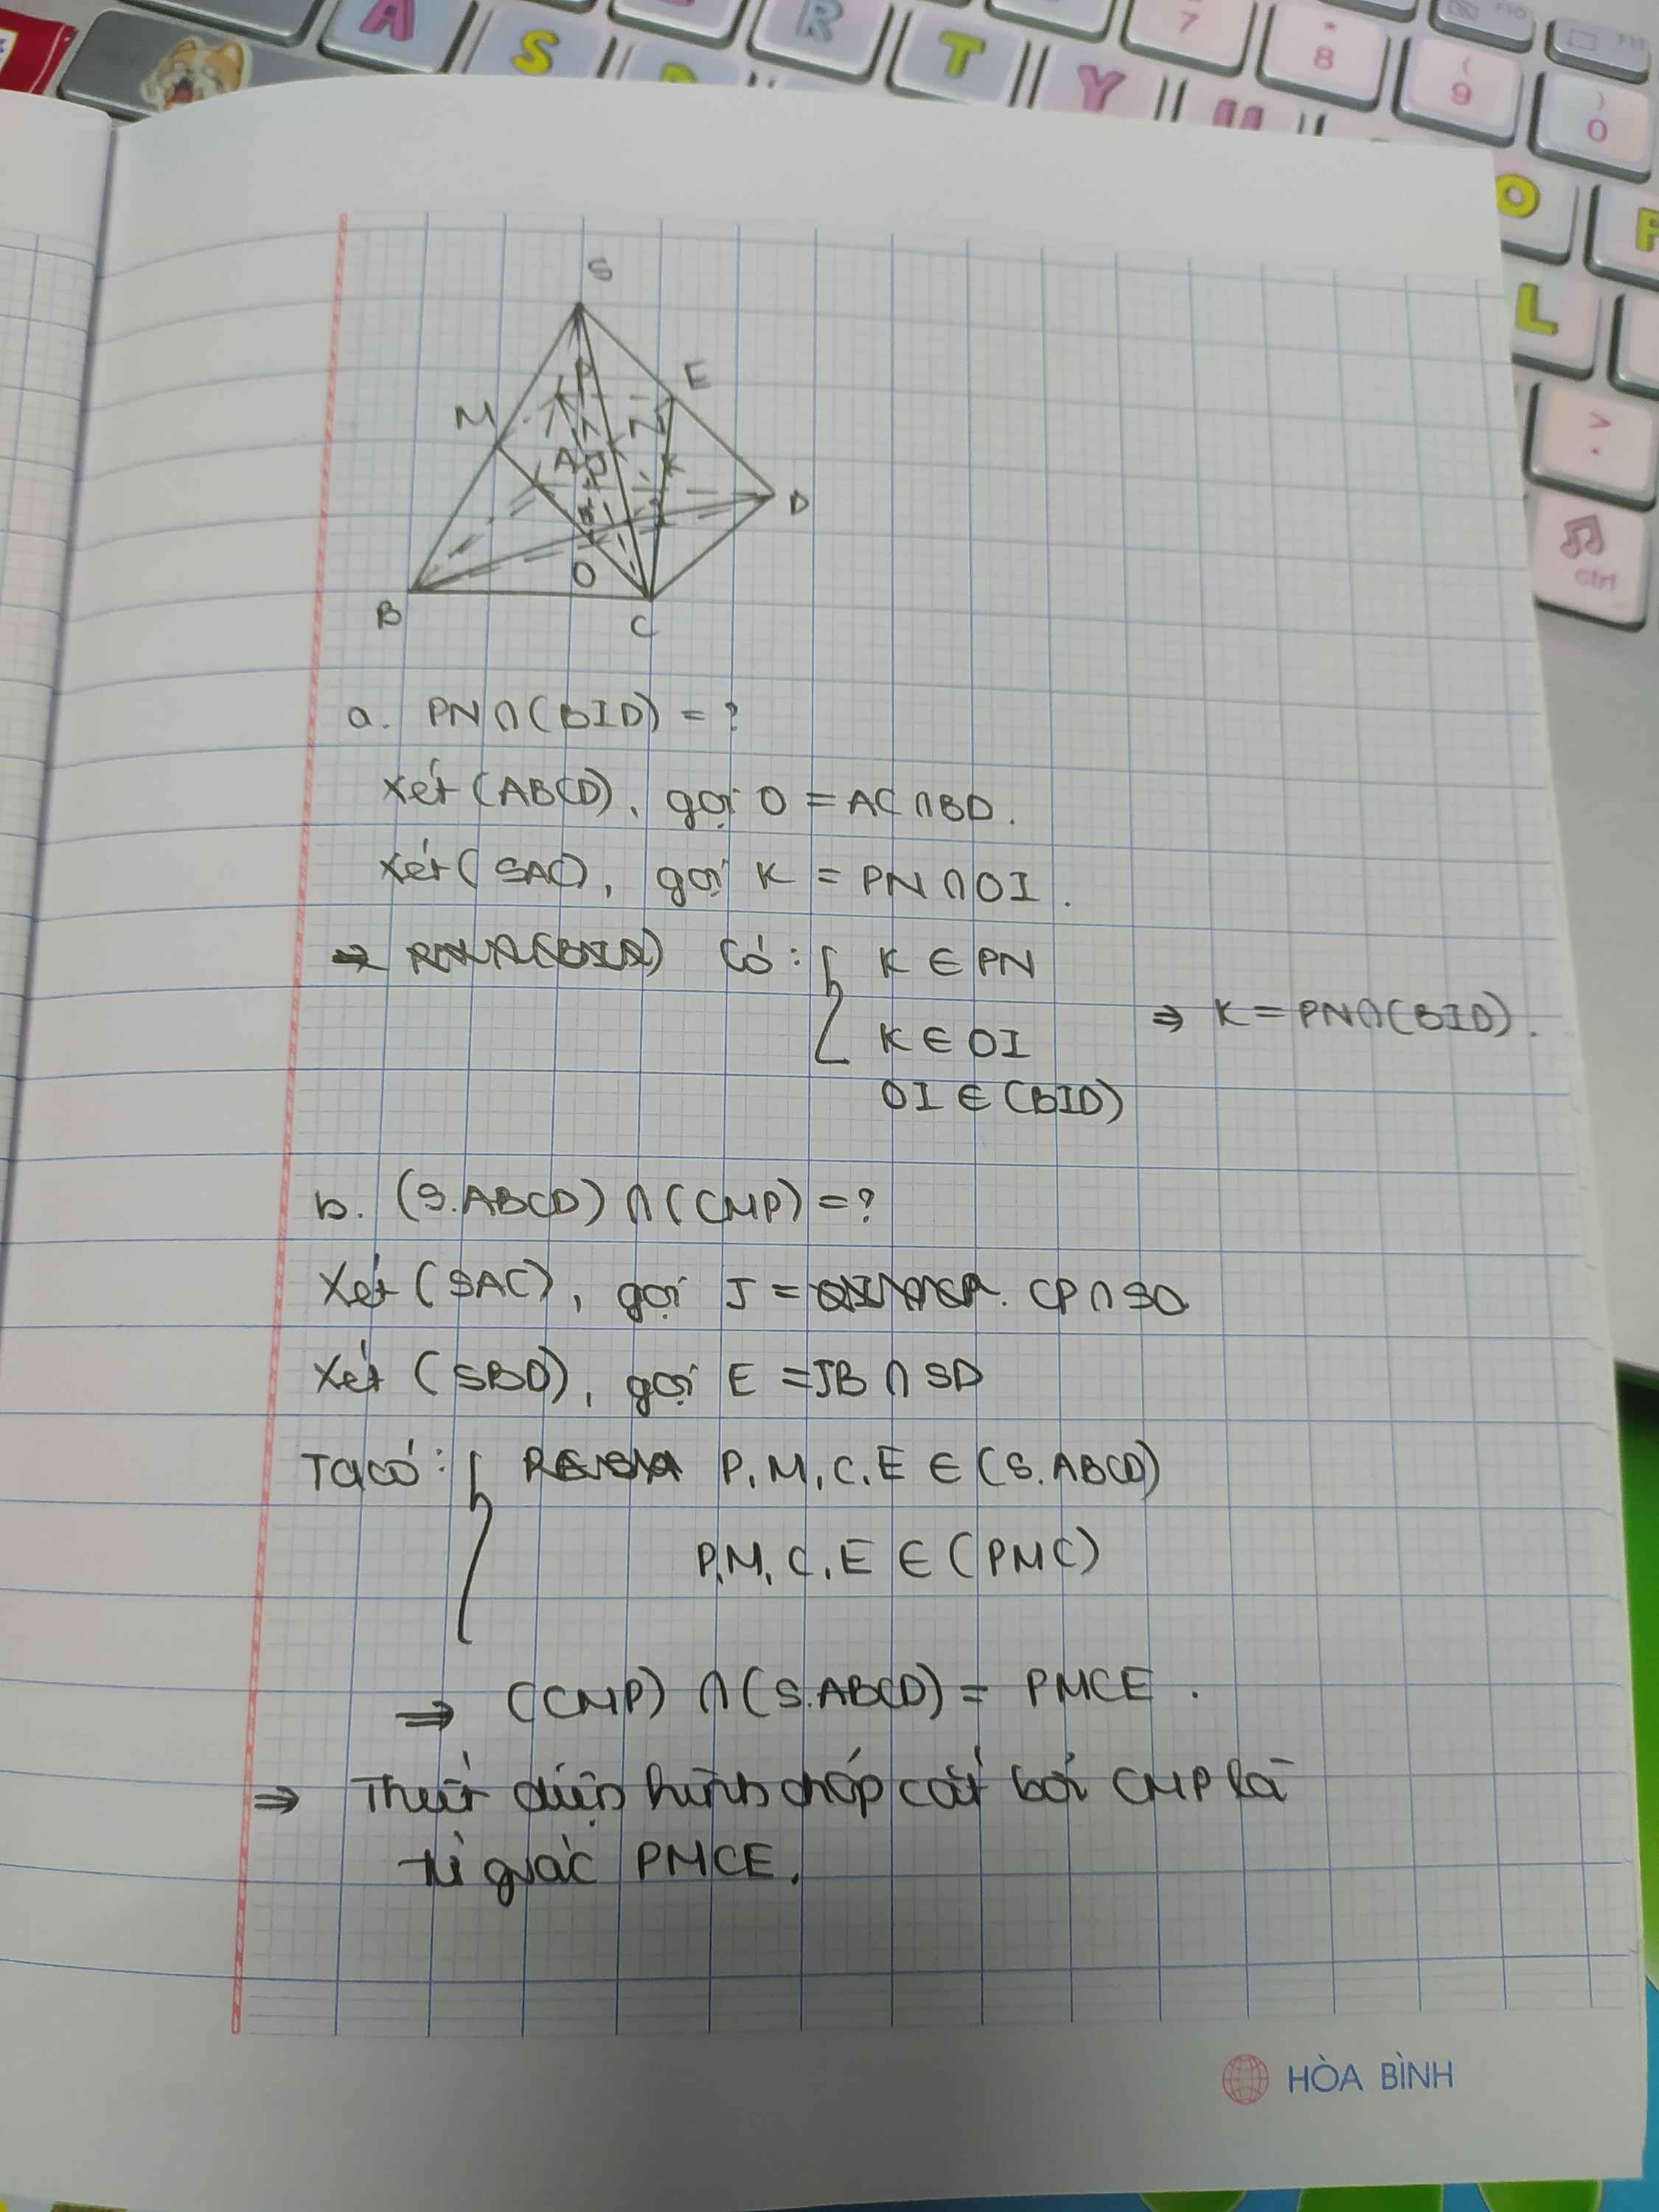 A
S
R
T
Y
7
*
8
(
9
)
0
F10
O
L
>
.
Ctrl
S
P
E
M
N
A
K
D
O
B
C
a. PN∩(BID) = ?
Xét (ABCD), gọi O = AC∩BD.
Xét (SAC), gọi K = PN∩OI.
⇒ Có: { K ∈ PN
K ∈ OI ⇒ K = PN∩(BID).
OI ∈ (BID)
b. (S.ABCD) ∩ (CMP) = ?
Xét (SAC), gọi J = CP∩SO
Xét (SBD), gọi E = JB ∩ SD
Ta có: { P, M, C, E ∈ (S.ABCD)
P, M, C, E ∈ (PMC)
⇒ (CMP) ∩ (S.ABCD) = PMCE.
⇒ Thiết diện hình chóp cắt bởi CMP là
tứ giác PMCE.
HÒA BÌNH